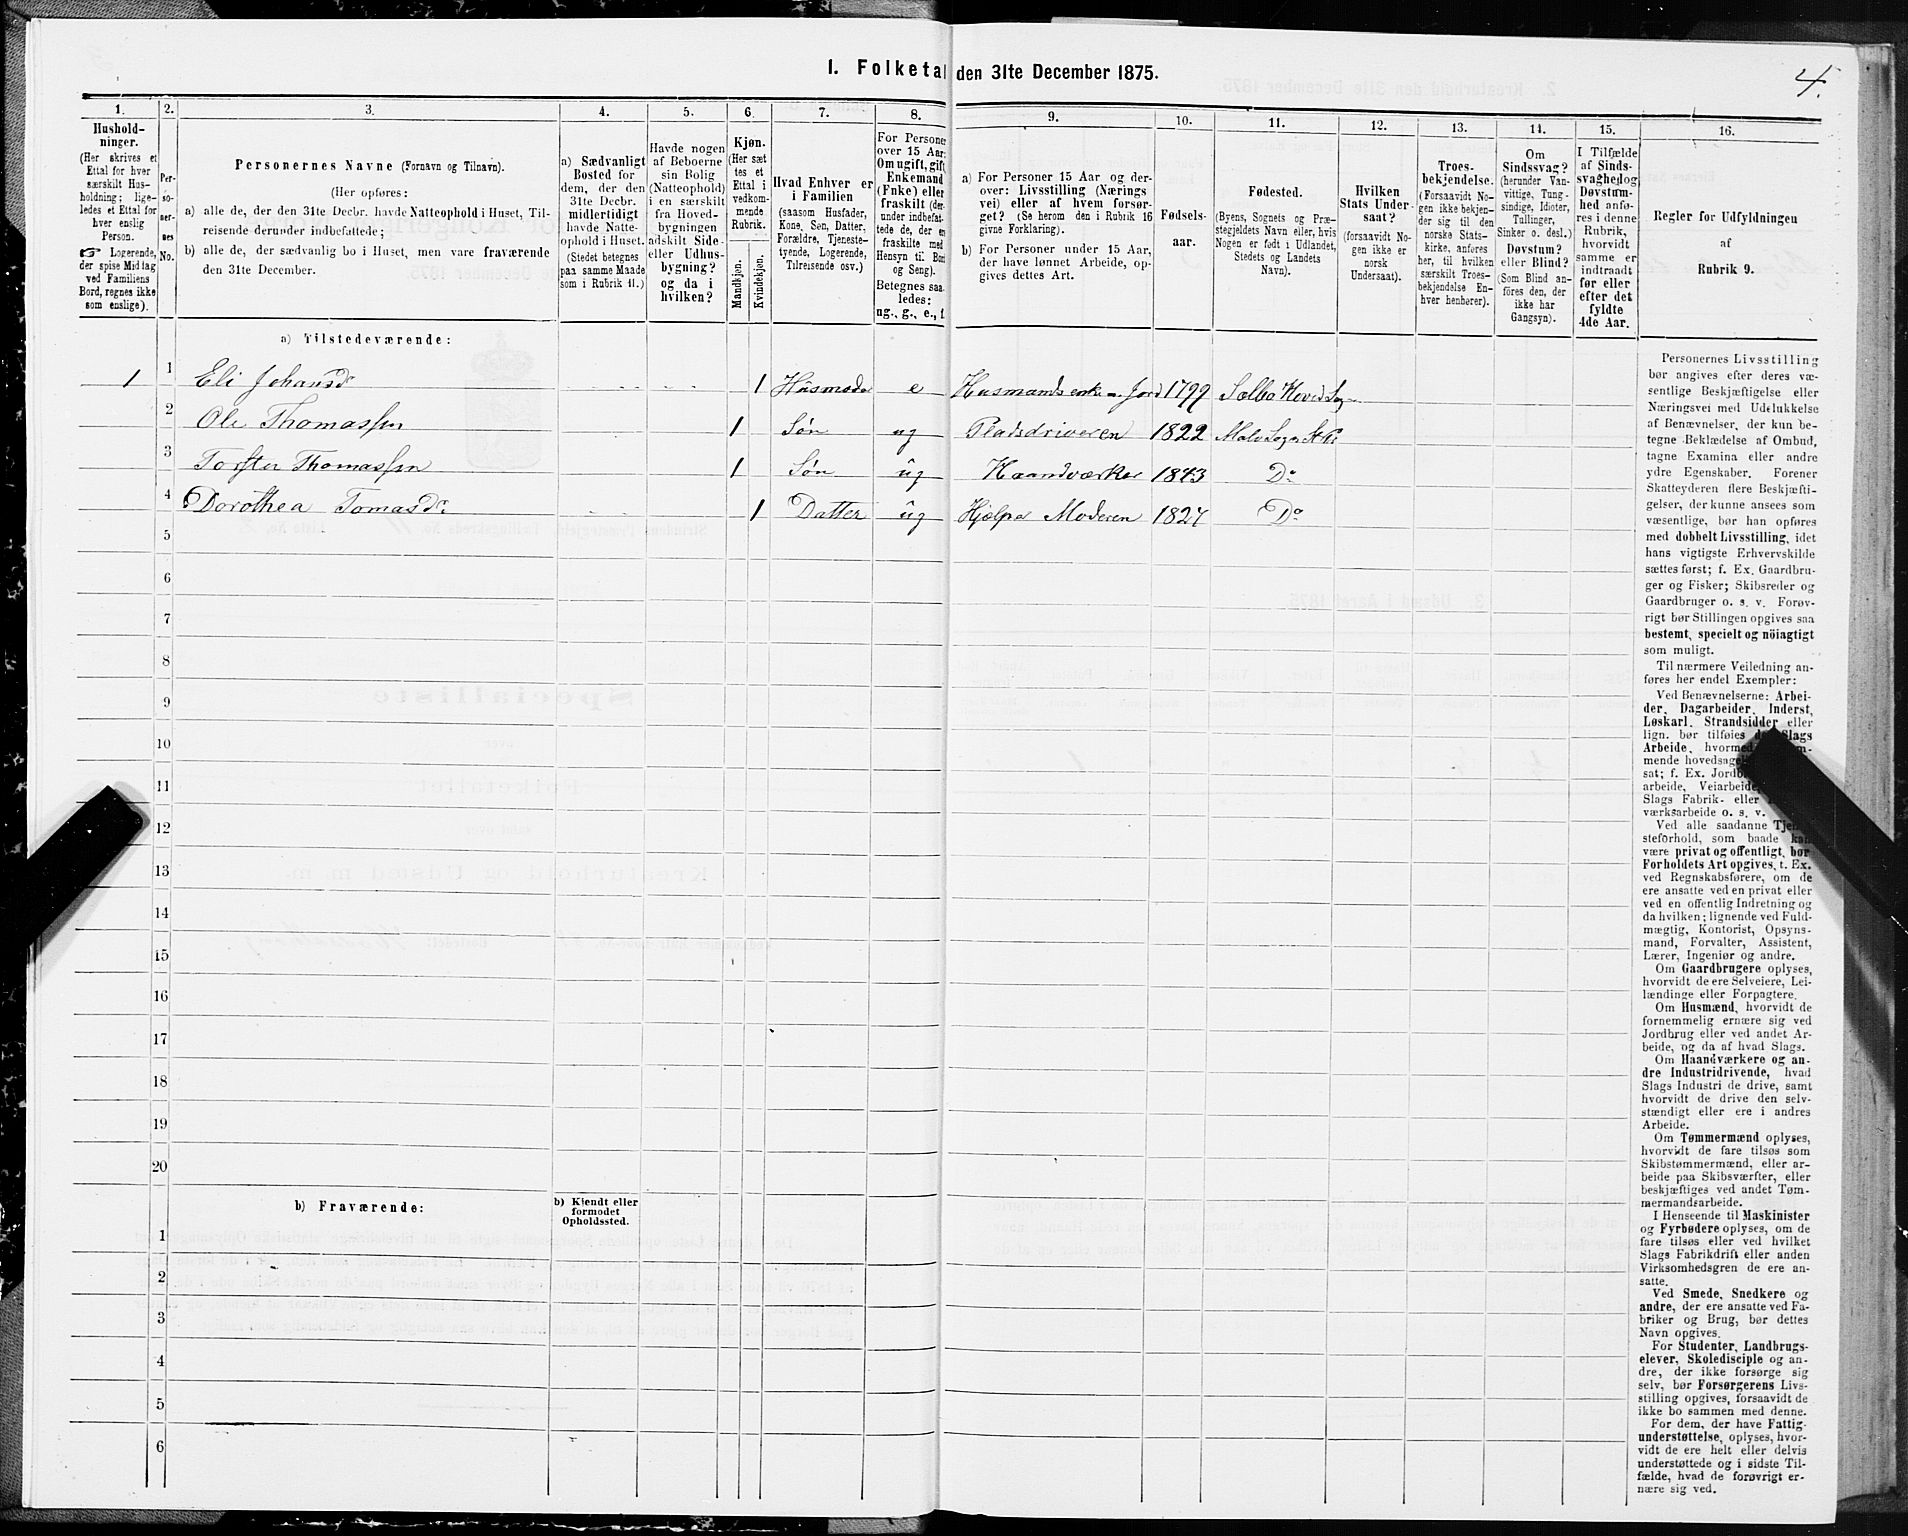 4.
I. Folketal den 31te December 1875.
1. 2. 3. 4. 5. 6. 7. 8. 9. 10. 11. 12. 13. 14. 15. 16.
Hushold-
ninger.
(Her skrives et
Ettal for hver
særskilt Hus-
holdning; lige-
ledes et Ettal for
hver enslig
Person.
☞ Logerende,
der spise Middag
ved Familiens
Bord, regnes ikke
som enslige).
Per-
so-
ner-
nes
No.
Personernes Navne (Fornavn og Tilnavn).
(Her opføres:
a) alle de, der den 31te Decbr. havde Natteophold i Huset, Til-
reisende derunder indbefattede;
b) alle de, der sædvanlig bo i Huset, men vare fraværende
den 31te December.
a) Sædvanligt
Bosted for
dem, der den
31te Decbr.
midlertidigt
havde Natte-
ophold i Huset.
(Stedet betegnes
paa samme Maade
som i Rubrik 11.)
Havde nogen
af Beboerne
sin Bolig
(Natteophold)
i en særskilt
fra Hoved-
bygningen
adskilt Side-
eller Udhus-
bygning?
og da i
hvilken?
Kjøn.
(Her sæt-
tes et
Ettal i
vedkom-
mende
Rubrik.
Mandkjøn.
Kvindekjøn.
Hvad Enhver er
i Familien
(saasom Husfader,
Kone, Søn, Datter,
Forældre, Tjeneste-
tyende, Logerende,
Tilreisende osv.)
For Personer
over 15 Aar:
Om ugift, gift,
Enkemand
(Enke) eller
fraskilt (der-
under indbefat-
tede de, der en
fraskilte med
Hensyn til Bord
og Seng).
Betegnes saa-
ledes:
ug., g., e., f.
a) For Personer 15 Aar og der-
over: Livsstilling (Nærings
vei) eller af hvem forsør-
get? (Se herom den i Rubrik 16
givne Forklaring).
b) For Personer under 15 Aar,
der have lønnet Arbeide, op-
gives dettes Art.
Fødsels-
aar.
Fødested.
(Byens, Sognets og Præ-
stegjeldets Navn eller, hvis
Nogen er født i Udlandet,
Stedets og Landets
Navn).
Hvilken
Stats Under-
saat?
(forsaavidt No-
gen ikke er
norsk
Undersaat).
Troes-
bekjendelse.
(Forsaavidt No-
gen ikke bekjen-
der sig til den
norske Stats-
kirke, anføres
her, til hvilken
særskilt Troes-
bekjendelse En-
hver henhører).
Om
Sindssvag?
(herunder Van-
vittige, Tung-
sindige, Idioter,
Tullinger,
Sinker o. desl.)
Døvstum?
eller Blind?
(Som Blind an-
føres den, der
ikke har
Gangsyn).
I Tilfælde
af Sinds-
svaghed og
Døvstum-
hed anfø-
res i denne
Rubrik,
hvorvidt
samme er
indtraadt
før eller
efter det
fyldte
4de Aar.
Regler for Udfyldningen
af
Rubrik 9.
a) Tilstedeværende:
1 1 Eli Johansd 1 Husmoder e Husmandsenke m Jord 1799 Sælbo Hoved Sog
2 Ole Thomassen 1 Søn ug Pladsdriveren 1822 Malv Sogn
3 Torsten Thomassen 1 Søn ug Haandværker 1843 Do
4 Dorothea Tomasdr. 1 Datter ug Hjælper Moderen 1827 Do
5
6
7
8
9
10
11
12
13
14
15
16
17
18
19
20
b) Fraværende:
b) Kjendt eller
formodet
Opholdssted.
1
2
3
4
5
6
Personernes Livsstilling
bør angives efter deres væ-
sentlige Beskjæftigelse eller
Næringsvei med Udelukkelse
af Benævnelser, der kun be-
tegne Beklædelse af Ombud,
tagne Examina eller andre
ydre Egenskaber. Forener
Skatteyderen flere Beskjæfti-
gelser, der kunne ansees som
væsentlige, bør han opføres
med dobbelt Livsstilling, idet
hans vigtigste Erhvervskilde
sættes først; f. Ex. Gaardbru-
ger og Fisker; Skibsreder og
Gaardbruger o. s. v. Forøv-
rigt bør Stillingen opgives saa
bestemt, specielt og nöiagtigt
som muligt.
Til nærmere Veiledning an-
føres her endel Exempler:
Ved Benævnelserne: Arbei-
der, Dagarbeider, Inderst,
Løskarl, Strandsidder eller
lign. bør tilføies Slags
Arbeide,
mende
sat; f. Ex.
arbeide,
Slags Fabrik- eller
værksarbeide o. s. v.
Ved alle saadanne
steforhold, som baade kan
være privat og offentligt, bør
Forholdets Art opgives, t. Ex.
ved Regnskabsførere, om de
ere ansatte ved en privat eller
ved en offentlig Indretning og
da hvilken; lignende ved Fuld-
mægtig, Kontorist, Opsyns-
mand, Forvalter, Assistent,
Lærer, Ingeniør og andre.
Om Gaardbrugere oplyses,
hvorvidt de ere Selveiere, Lei-
lændinge eller Forpagtere.
Om Husmænd, hvorvidt de
fornemmelig ernære sig ved
Jordbrug eller ved andet Ar-
beide, og da af hvad Slags.
Om Haandværkere og an-
dre Industridrivende, hvad
Slags Industri de drive, samt
hvorvidt de drive den selv-
stændigt eller ere i andres
Arbeide.
Om Tømmermænd oplyses,
hvorvidt de fare tilsøs som
Skibstømmermænd, eller ar-
beide paa Skibsværfter, eller
beskjæftiges ved andet Tøm-
mermandsarbeide.
I Henseende til Maskinister
og Fyrbødere oplyses, om de
fare tilsøs eller ved hvilket
Slags Fabrikdrift eller anden
Virksomhedsgren de ere an-
satte.
Ved Smede, Snedkere og
andre, der ere ansatte ved Fa-
briker og Brug, bør dettes
Navn opgives.
For Studenter, Landbrugs-
elever, Skoledisciple og an-
dre, der ikke forsørge sig
selv, bør Forsørgerens Livs-
stilling opgives, forsaavidt de
ikke bo sammen med denne.
For dem, der have Fattig-
understøttelse, oplyses, hvor-
vidt de ere helt eller delvis
understøttede og i sidste Til-
fælde, hvad de forøvrigt er-
nære sig ved.